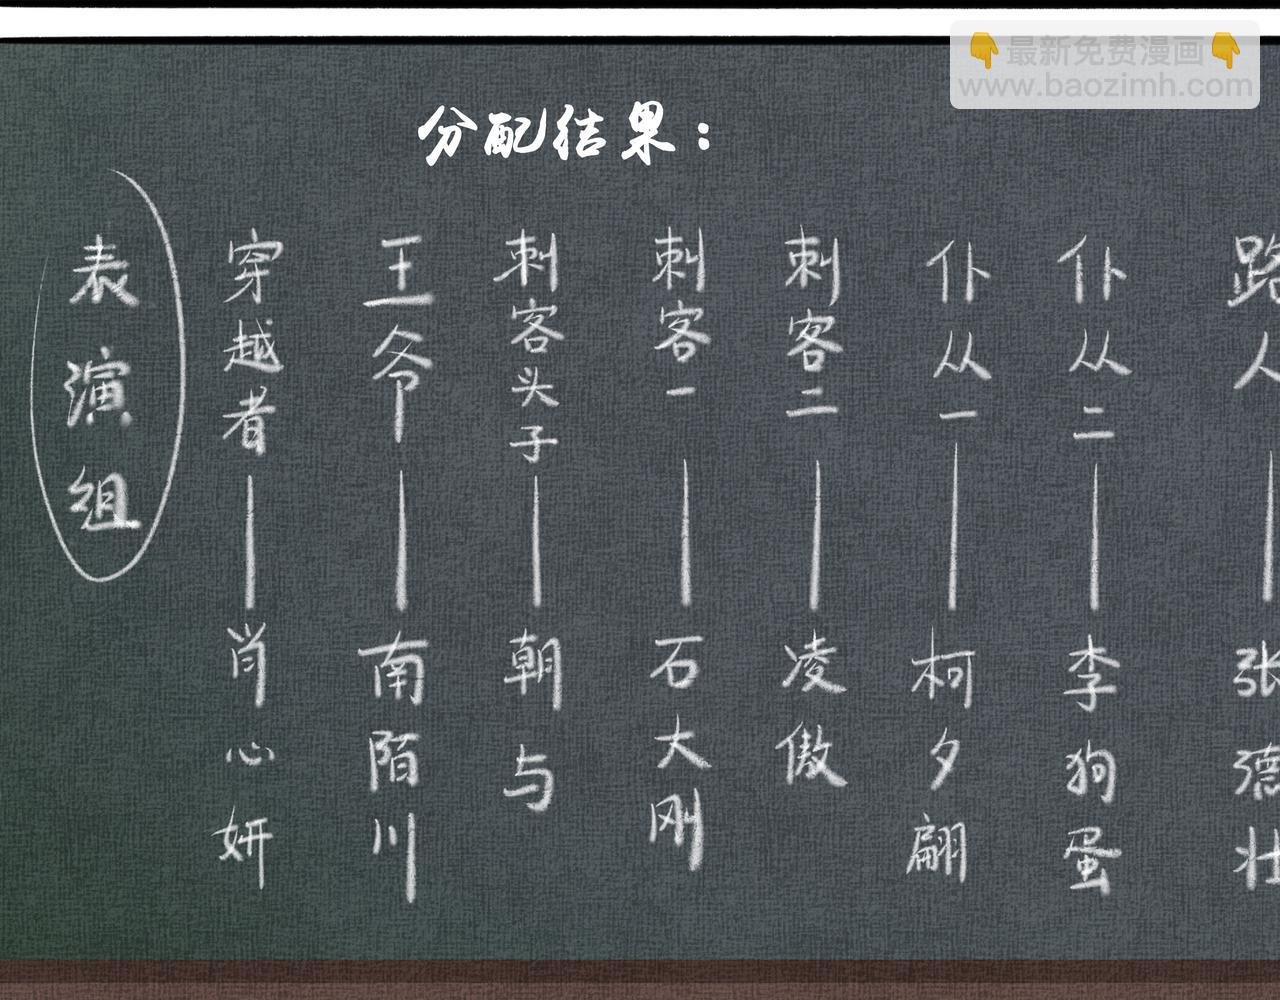 最新免费漫画
www.baozimh.com
分配结果：
表演组
穿越者——肖心妍
王爷——南陌川
刺客头子——朝与
刺客一——石大刚
刺客二——凌傲
仆从一——柯夕翩
仆从二——李狗蛋
路人——张德壮